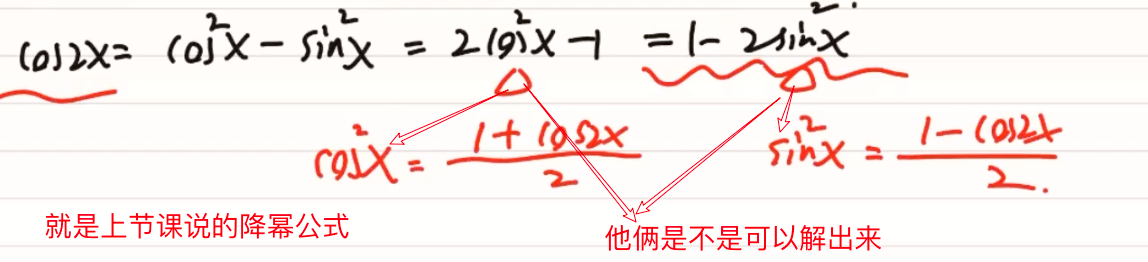 cos2x = cos²x - sin²x = 2cos²x - 1 = 1 - 2sin²x
cos²x = (1 + cos2x)/2 sin²x = (1 - cos2x)/2.
就是上节课说的降幂公式
他俩是不是可以解出来